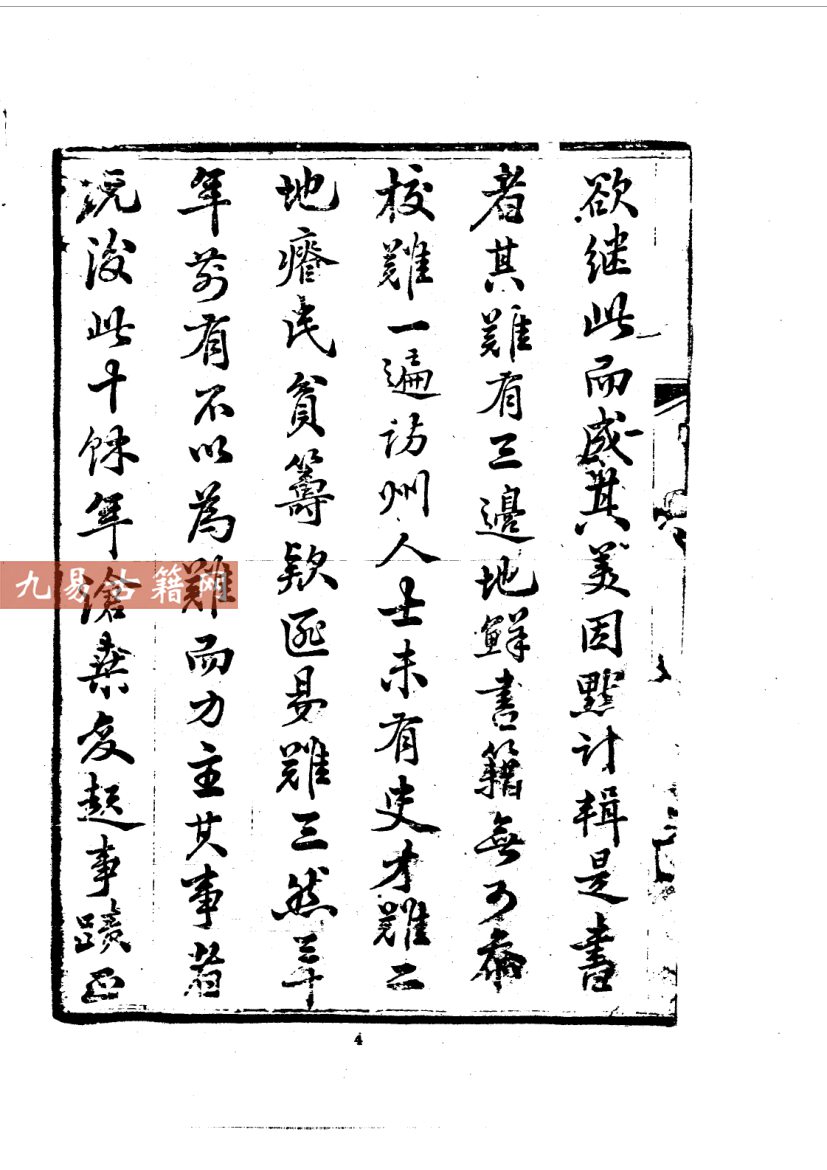 欲继此而成其美因黙计輯是書
者其難有三邊地鮮書籍無可叅
校難一遍訪州人士未有史才難二
地瘠民貧籌欵匪易難三然三十
年前有不以為難而力主其事者
况後此十餘年滄桑变起事蹟正
九易古籍网
4